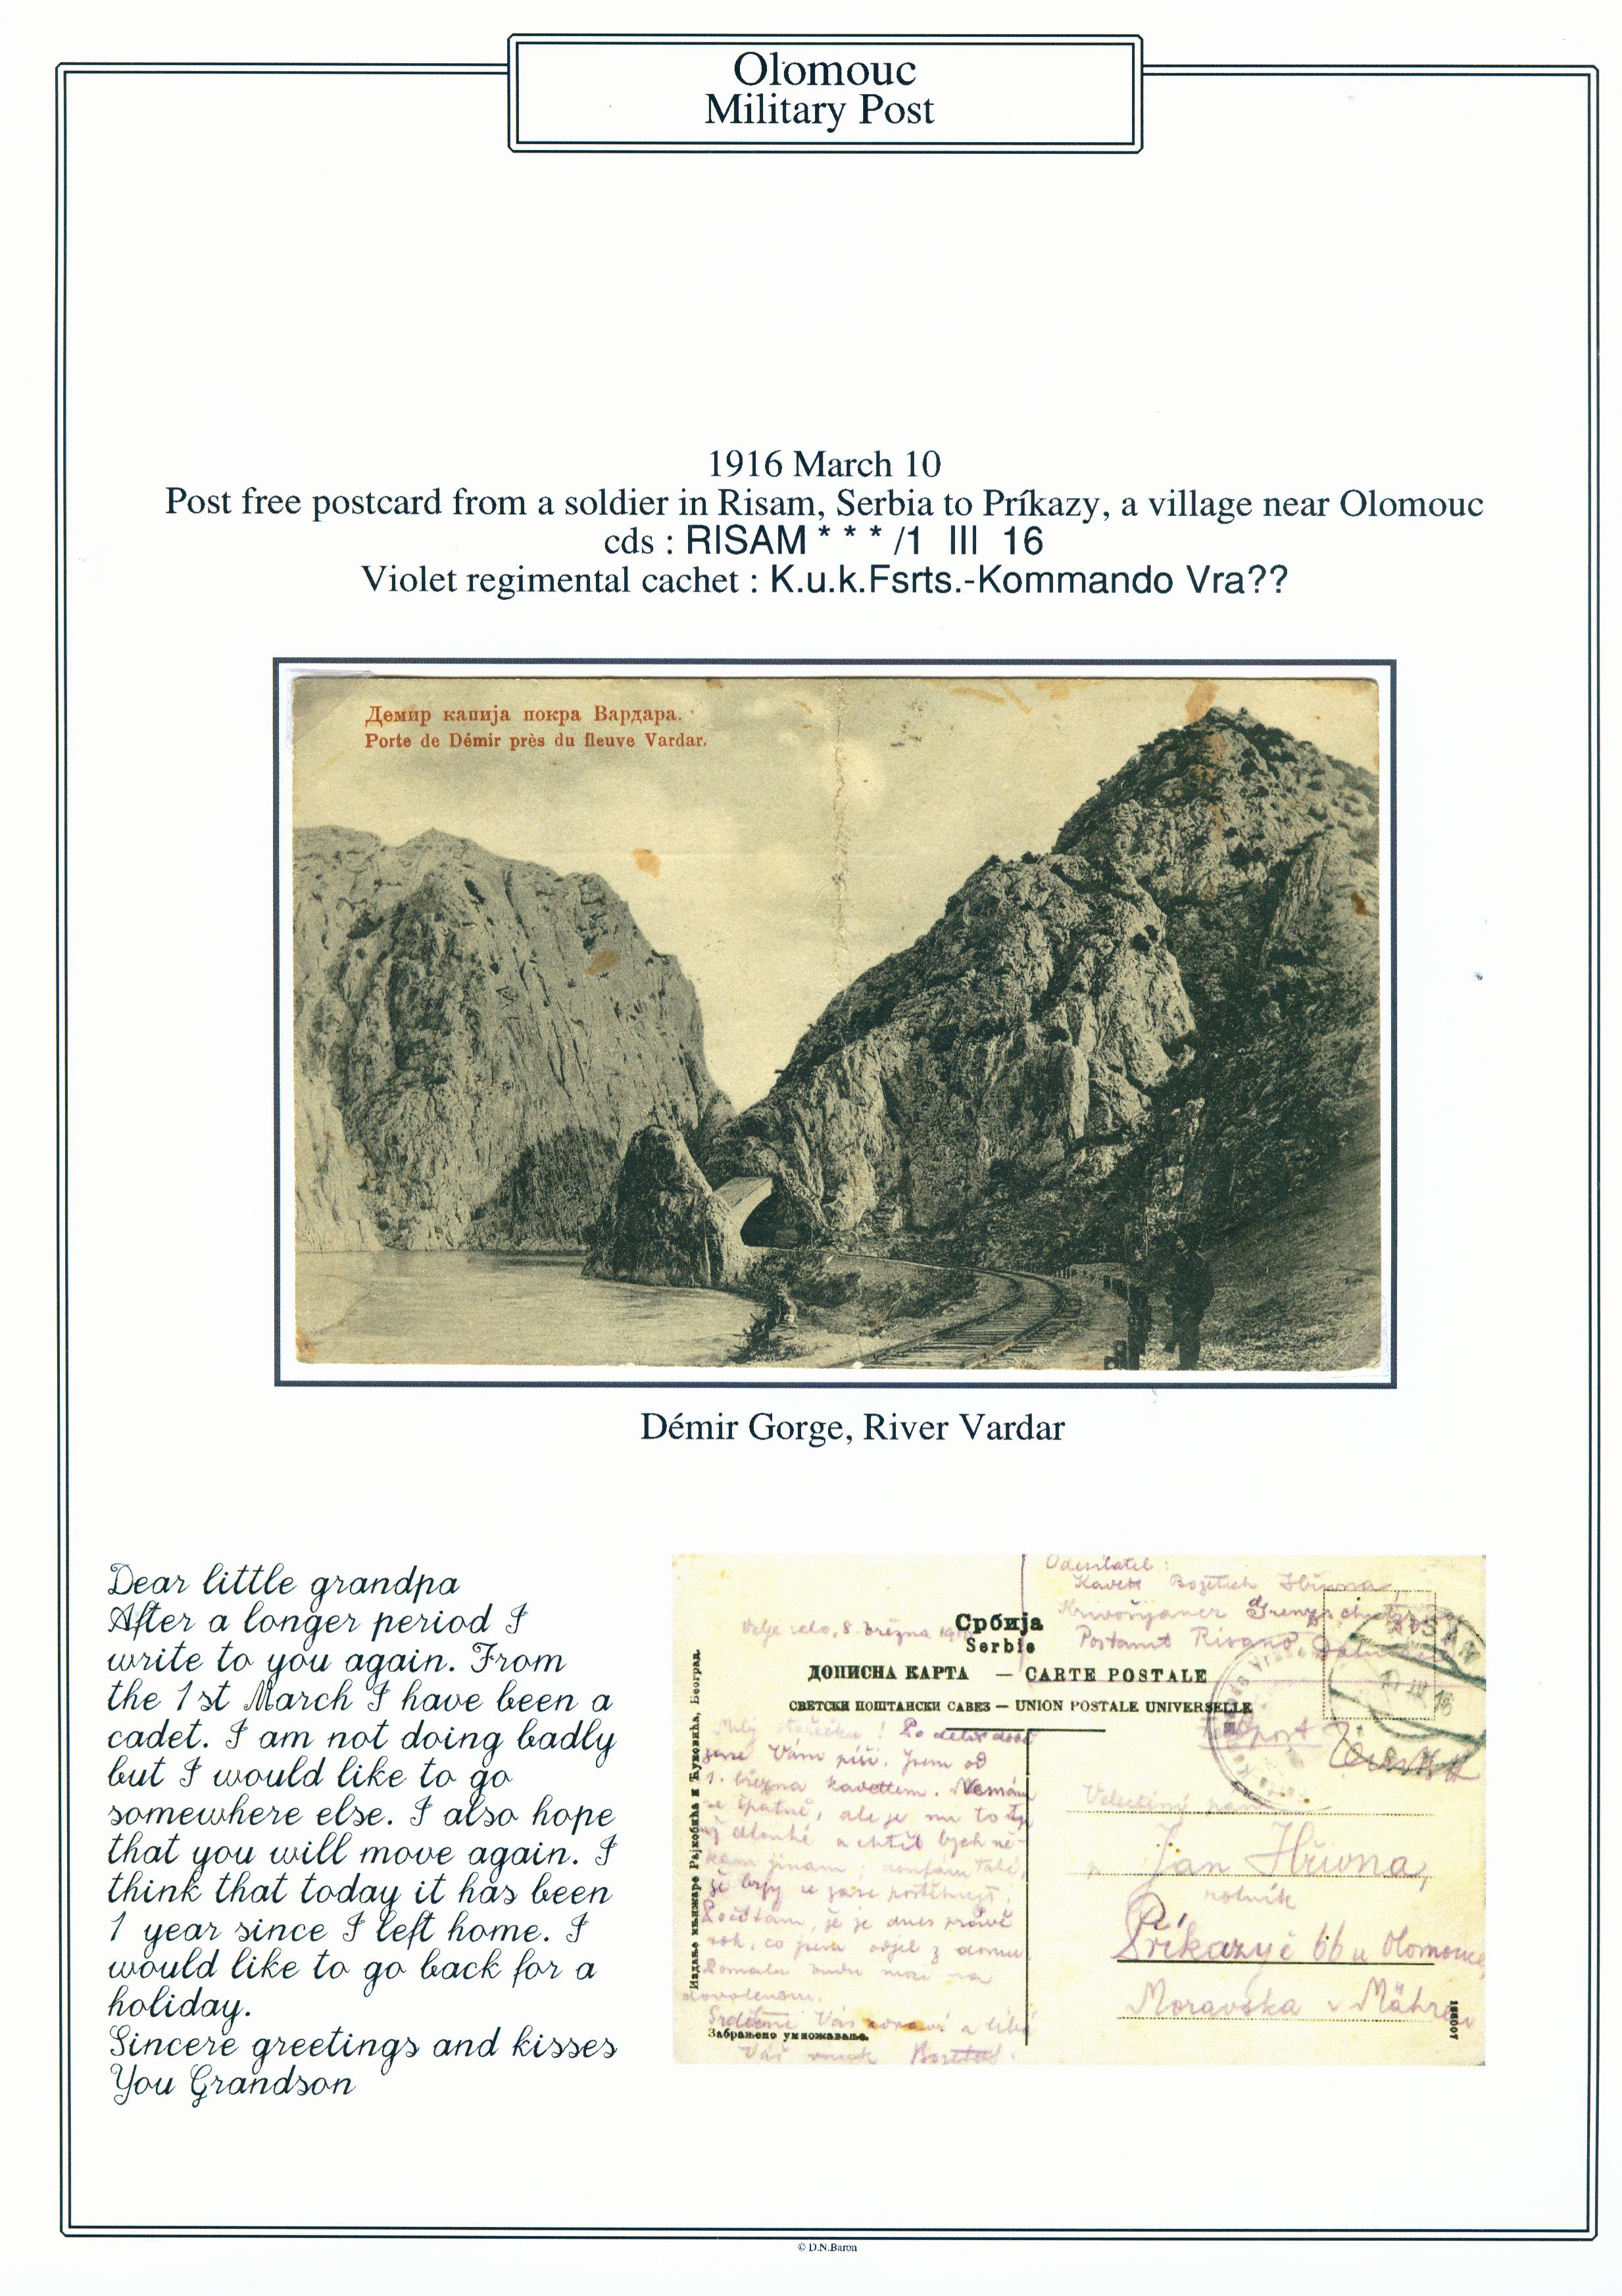 Olomouc
Military Post
1916 March 10
Post free postcard from a soldier in Risam, Serbia to Príkazy, a village near Olomouc
cds : RISAM * * * /1 III 16
Violet regimental cachet : K.u.k.Fsrts.-Kommando Vra??
Демир капија покра Вардара.
Porte de Démir près du fleuve Vardar.
Démir Gorge, River Vardar
Dear little grandpa
After a longer period I
write to you again. From
the 1st March I have been a
cadet. I am not doing badly
but I would like to go
somewhere else. I also hope
that you will move again. I
think that today it has been
1 year since I left home. I
would like to go back for a
holiday.
Sincere greetings and kisses
You Grandson
Odesílatel:
Postamt Risano,
8. března
Србија
Serbie
ДОПИСНА КАРТА — CARTE POSTALE
СВЕТСКИ ПОШТАНСКИ САВЕЗ — UNION POSTALE UNIVERSELLE
Milý stařečku! Po delší době
zase Vám píši. Jsem od
1. března kadettem. Nemám
se špatně, ale je mi to
dlouhé a chtěl bych ně-
kam jinam; doufám také,
že zase
Počítám, že je dnes právě
rok, co jsem odjel z domu.
na
dovolenou.
Srdečně Vás a líbá
Váš vnuk
Издање књижаре Рајковића и Ћуковића, Београд.
Забрањено умножавање.
Velectěný pan
Jan Hřivna,
rolník
Příkazy č 66 u Olomouce
Moravska v Mähren
© D.N.Baron